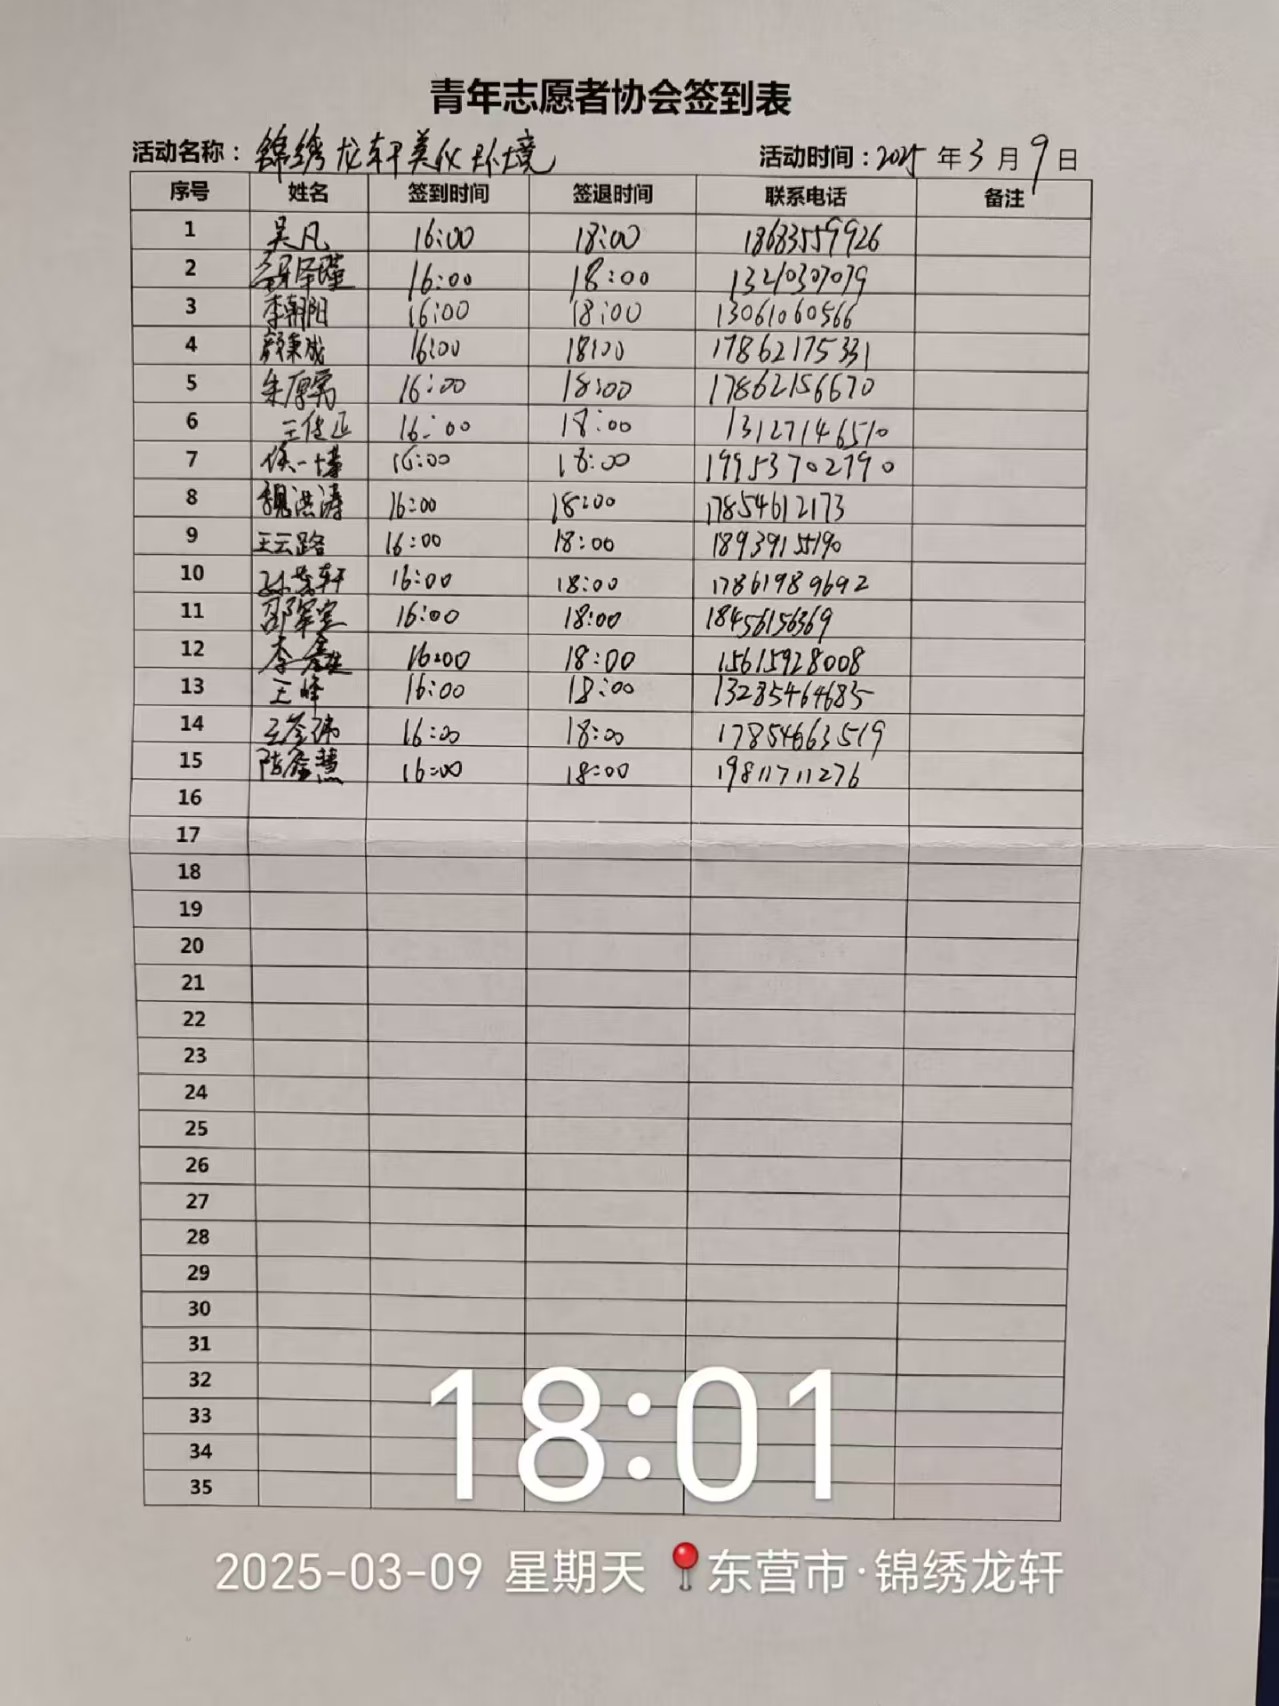 青年志愿者协会签到表
活动名称：锦绣龙轩美化环境 活动时间：2025 年 3 月 9 日
序号 姓名 签到时间 签退时间 联系电话 备注
1 吴凡 16:00 18:00 18683559926
2 16:00 18:00 13210307079
3 李朝阳 16:00 18:00 13061060566
4 16:00 18:00 17862175331
5 朱厚霈 16:00 18:00 17862156670
6 16:00 18:00 13127146510
7 16:00 18:00 19953702790
8 魏洪涛 16:00 18:00 17854612173
9 王云路 16:00 18:00 18939155190
10 16:00 18:00 17861989692
11 16:00 18:00 18456156369
12 李 16:00 18:00 15615928008
13 王峰 16:00 18:00 13285464685
14 16:00 18:00 17854663519
15 陈鑫慧 16:00 18:00 19811711276
16
17
18
19
20
21
22
23
24
25
26
27
28
29
30
31
32
33
34
35
18:01
2025-03-09 星期天 东营市·锦绣龙轩